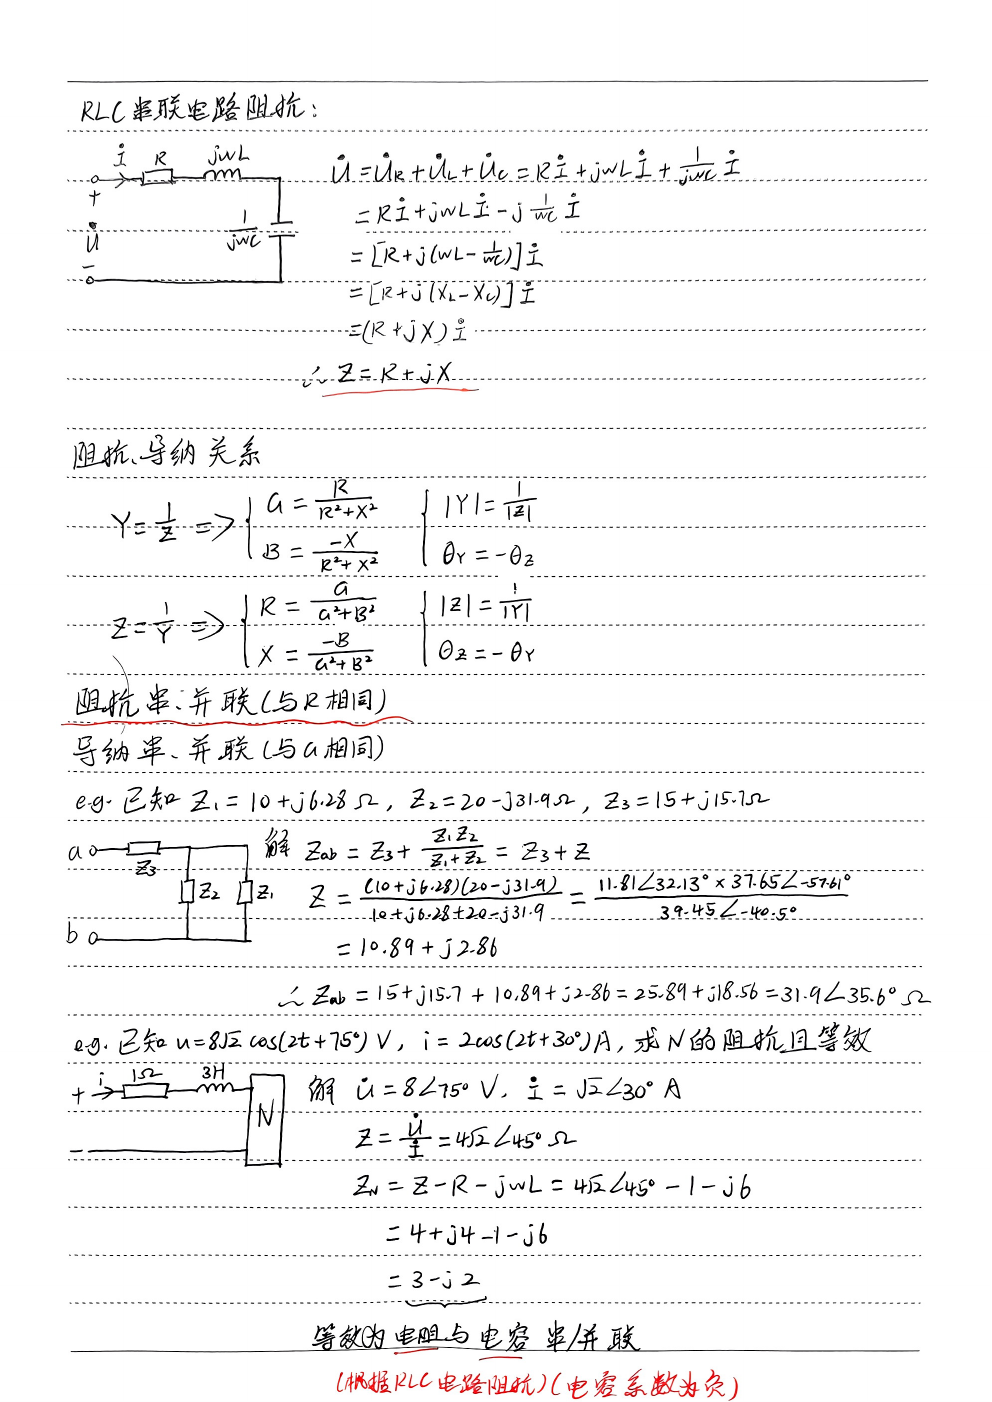 RLC串联电路阻抗:
İ R jωL
+ U̇ - 1/jωC
U̇ = U̇R + U̇L + U̇C = Rİ + jωLİ + 1/jωC İ
= Rİ + jωLİ - j 1/ωC İ
= [R + j(ωL - 1/ωC)] İ
= [R + j(XL - XC)] İ
= (R + jX) İ
∴ Z = R + jX
阻抗、导纳关系
Y = 1/Z => { G = R/(R²+X²) { |Y| = 1/|Z|
B = -X/(R²+X²) θY = -θZ
Z = 1/Y => { R = G/(G²+B²) { |Z| = 1/|Y|
X = -B/(G²+B²) θZ = -θY
阻抗串、并联(与R相同)
导纳串、并联(与G相同)
e.g. 已知 Z1 = 10 + j6.28Ω, Z2 = 20 - j31.9Ω, Z3 = 15 + j15.7Ω
a Z3 Z2 Z1 b
解 Zab = Z3 + Z1Z2/(Z1+Z2) = Z3 + Z
Z = (10+j6.28)(20-j31.9)/(10+j6.28+20-j31.9) = 11.81∠32.13° × 37.65∠-57.61° / 39.45∠-40.5°
= 10.89 + j2.86
∴ Zab = 15 + j15.7 + 10.89 + j2.86 = 25.89 + j18.56 = 31.9∠35.6° Ω
e.g. 已知 u = 8√2 cos(2t+75°) V, i = 2cos(2t+30°) A, 求N的阻抗且等效
+ i 1Ω 3H N -
解 U̇ = 8∠75° V, İ = √2∠30° A
Z = U̇/İ = 4√2∠45° Ω
ZN = Z - R - jωL = 4√2∠45° - 1 - j6
= 4 + j4 - 1 - j6
= 3 - j2
等效为电阻与电容串/并联
(根据RLC电路阻抗)(电容系数为负)